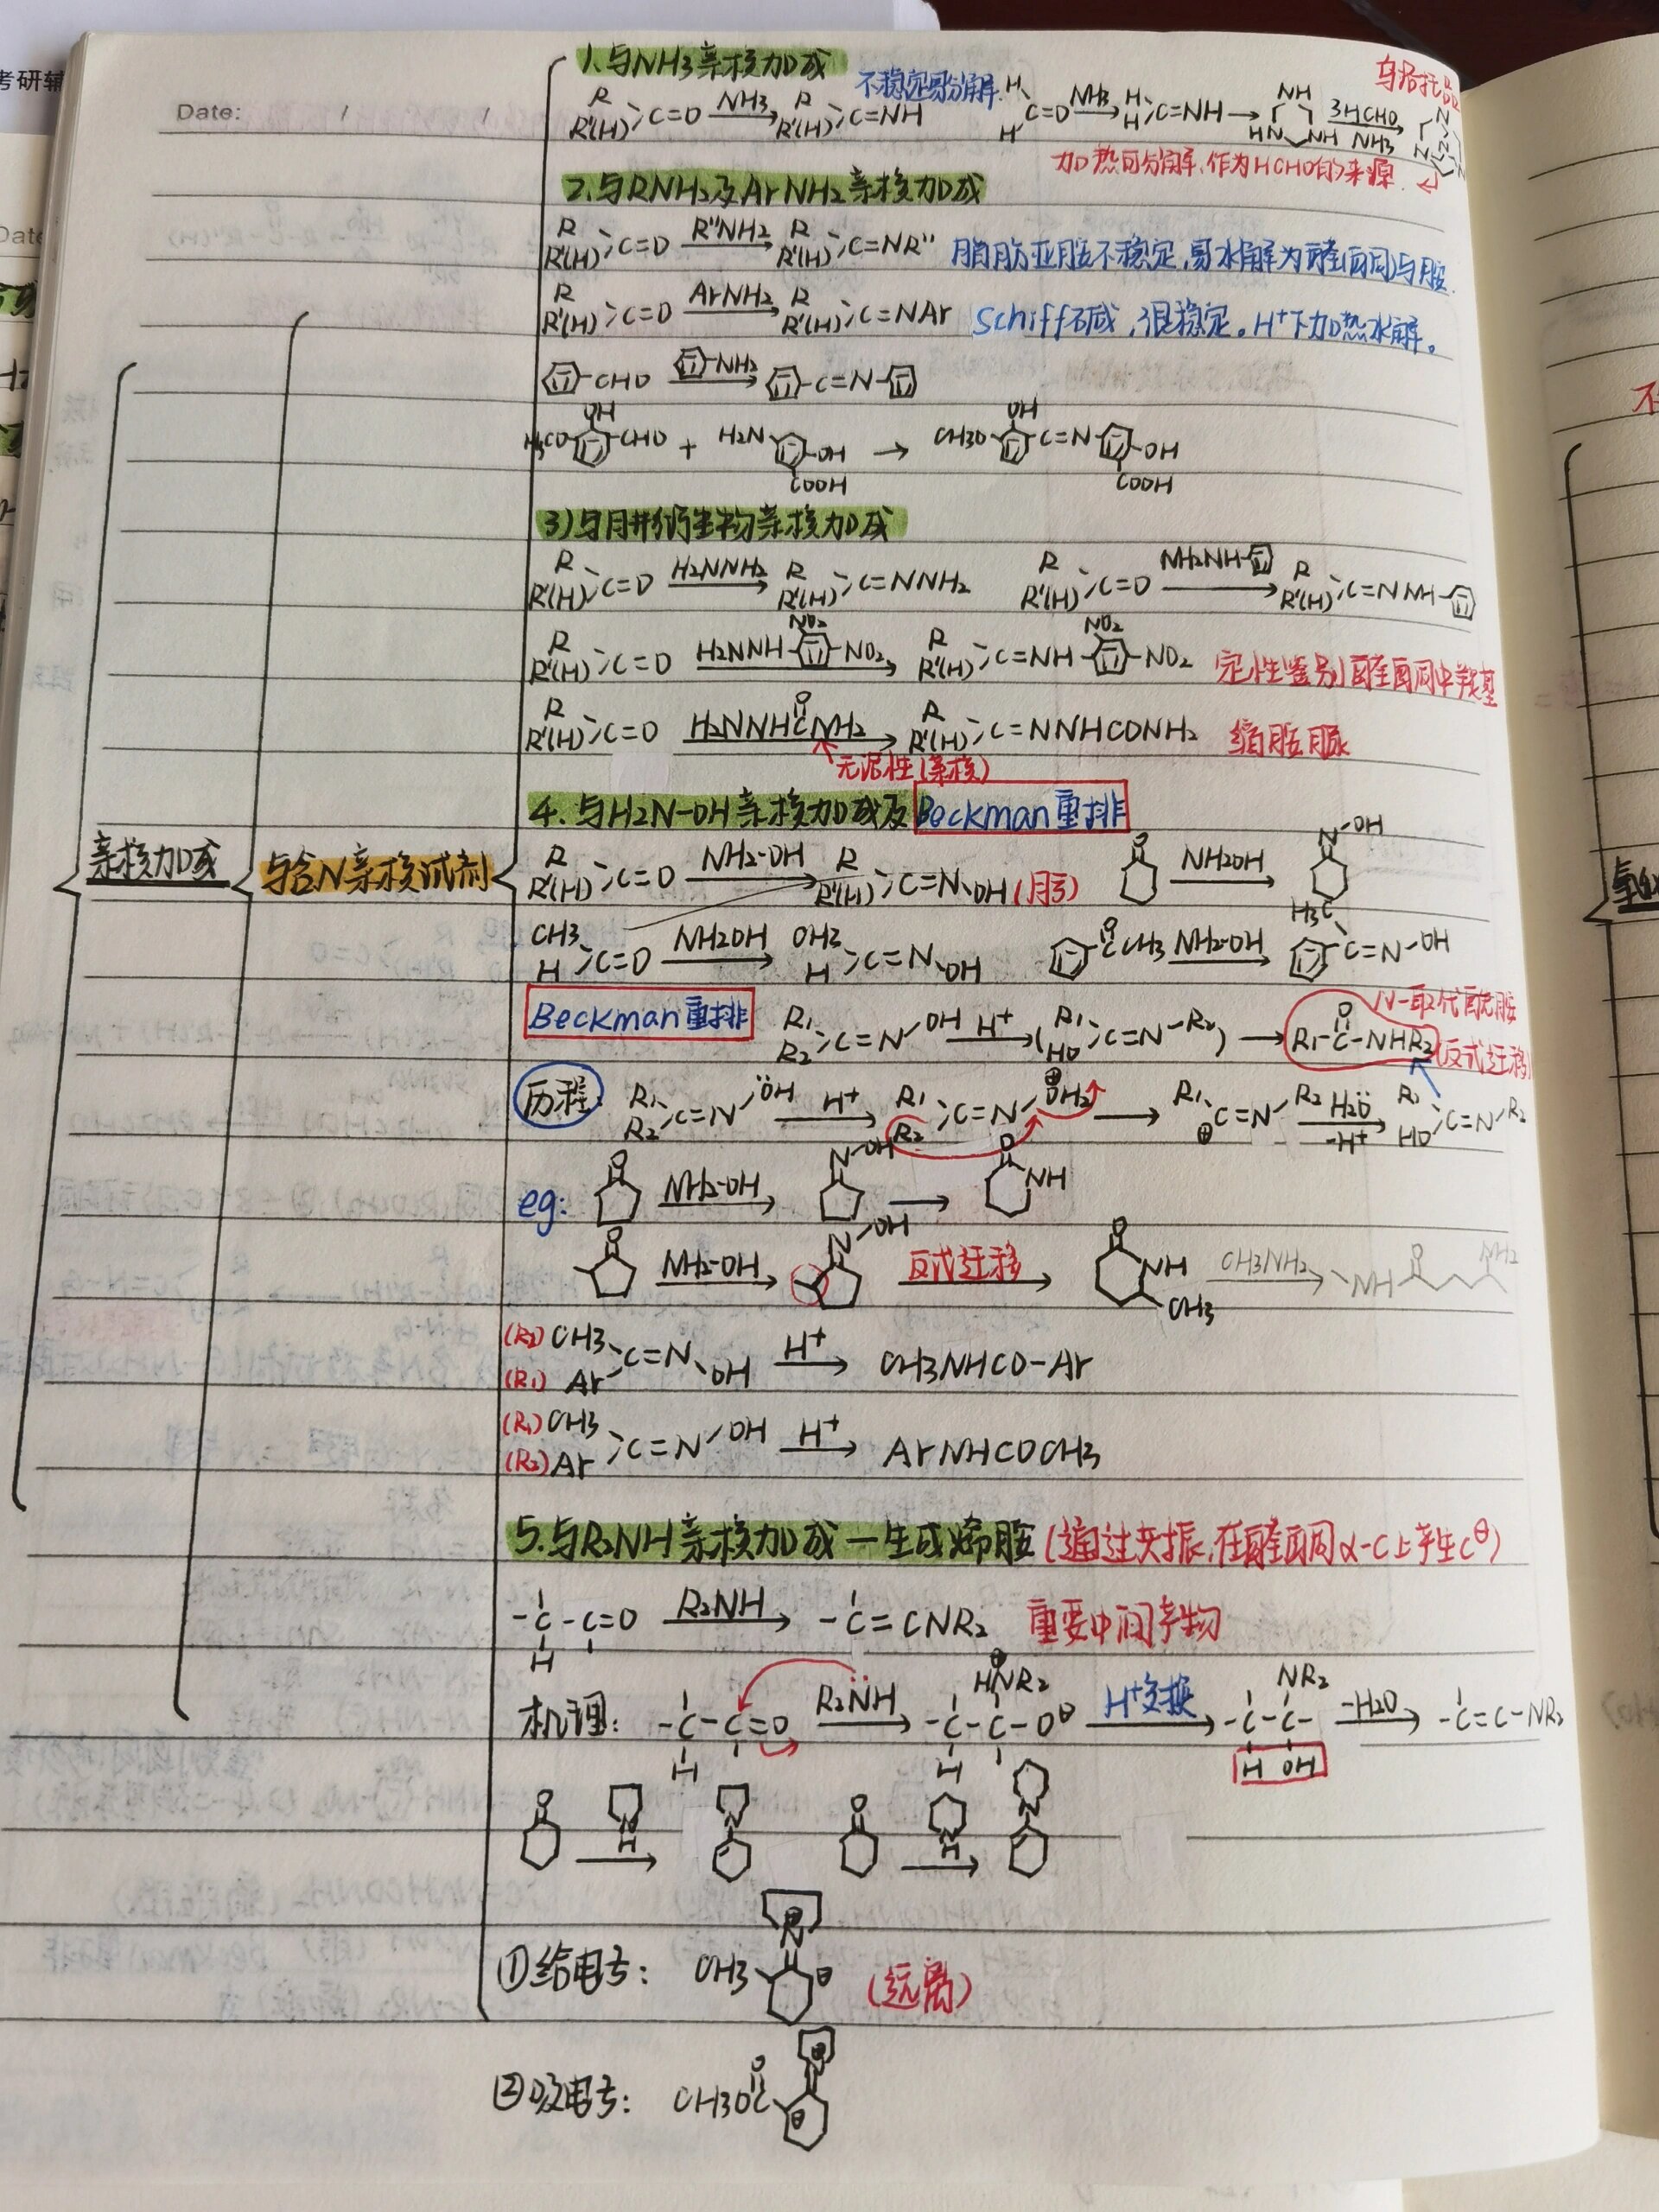 考研辅
Date: / /
1.与NH3亲核加成
不稳定易分解.
乌洛托品
R R'(H) C=O NH3 R R'(H) C=NH
H H C=O NH3 H H C=NH → NH HN NH 3HCHO NH3
加热可分解,作为HCHO的来源.
2.与RNH2及ArNH2亲核加成
R R'(H) C=O R''NH2 R R'(H) C=NR'' 脂肪亚胺不稳定,易水解为醛(酮)与胺.
R R'(H) C=O ArNH2 R R'(H) C=NAr Schiff碱,很稳定。H+下加热水解。
-CHO -NH2 -C=N-
H3CO OH -CHO + H2N -OH COOH → CH3O OH -C=N- -OH COOH
3)与肼衍生物亲核加成
R R'(H) C=O H2NNH2 R R'(H) C=NNH2 R R'(H) C=O NH2NH- R R'(H) C=NNH-
R R'(H) C=O H2NNH- NO2 -NO2 R R'(H) C=NH- NO2 -NO2 定性鉴别醛酮中羰基
R R'(H) C=O H2NNHCNH2 O R R'(H) C=NNHCONH2 缩胺脲
无活性(亲核)
4.与H2N-OH亲核加成及Beckman重排
亲核加成
与含N亲核试剂
R R'(H) C=O NH2-OH R R'(H) C=N-OH(肟) O NH2OH N-OH
CH3 H C=O NH2OH CH3 H C=N-OH O CCH3 NH2-OH H3C C=N-OH
Beckman重排 R1 R2 C=N-OH H+ (R1 HO C=N-R2) → R1-C-NHR2 O N-取代酰胺 (反式迁移)
历程: R1 R2 C=N ÖH H+ R1 R2 C=N ⊕OH2 → R1 ⊕C=N R2 H2Ö -H+ R1 HO C=N-R2
eg: O NH2-OH N-OH → O NH
O NH2-OH N-OH 反式迁移 O NH CH3 CH3NH2 NH O NH2
(R2) CH3 (R1) Ar C=N-OH H+ CH3NHCO-Ar
(R1) CH3 (R2) Ar C=N-OH H+ ArNHCOCH3
5.与R2NH亲核加成—生成烯胺(通过共振,在醛酮α-C上产生C⊖)
-C-C=O H R2NH -C=CNR2 重要中间产物
机理: -C-C=O H R2N̈H -C-C-O⊖ H ⊕HNR2 H+交换 -C-C- NR2 H OH -H2O -C=C-NR2
O N H N O N H N
①给电子: CH3 N ⊖ (远离)
②吸电子: CH3OC O ⊕ ⊖